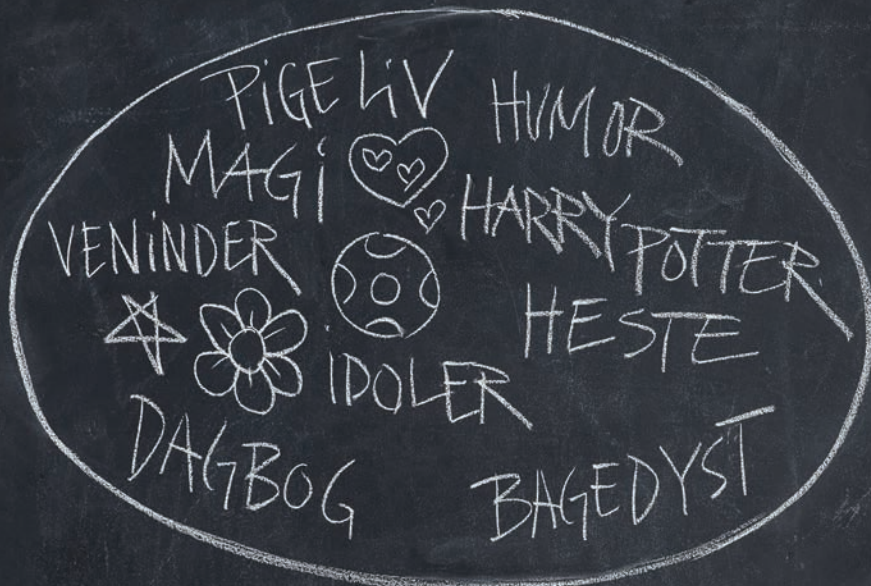 PiGE LiV
HUMOR
MAGi
HARRY POTTER
VENiNDER
HESTE
iDOLER
DAGBOG
BAGEDYST